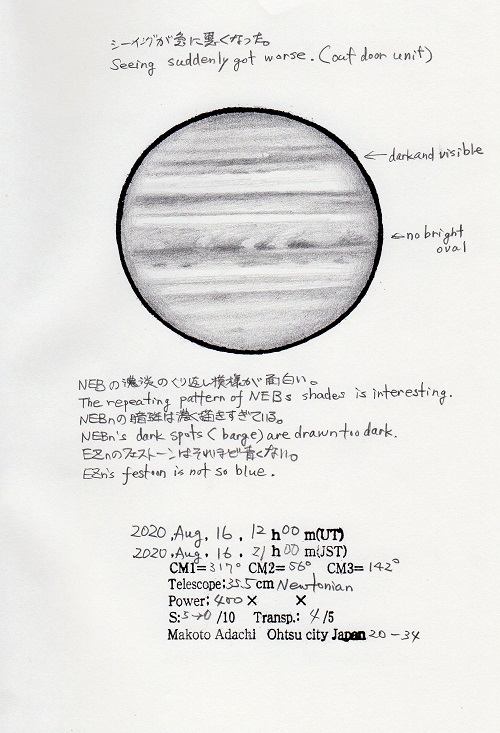 シーイングが急に悪くなった。
Seeing suddenly got worse. (out door unit)
← dark and visible
← no bright
oval
NEBの濃淡のくり返し模様が面白い。
The repeating pattern of NEB's shades is interesting.
NEBnの暗斑は濃く描きすぎている。
NEBn's dark spots (barge) are drawn too dark.
EZnのフェストーンはそれほど青くない。
EZn's festoon is not so blue.
2020, Aug, 16, 12 h 00 m(UT)
2020, Aug, 16, 21 h 00 m(JST)
CM1=317° CM2=56° CM3=142°
Telescope: 35.5cm Newtonian
Power: 400 × ×
S: 5→0 /10 Transp.: 4/5
Makoto Adachi Ohtsu city Japan 20-34